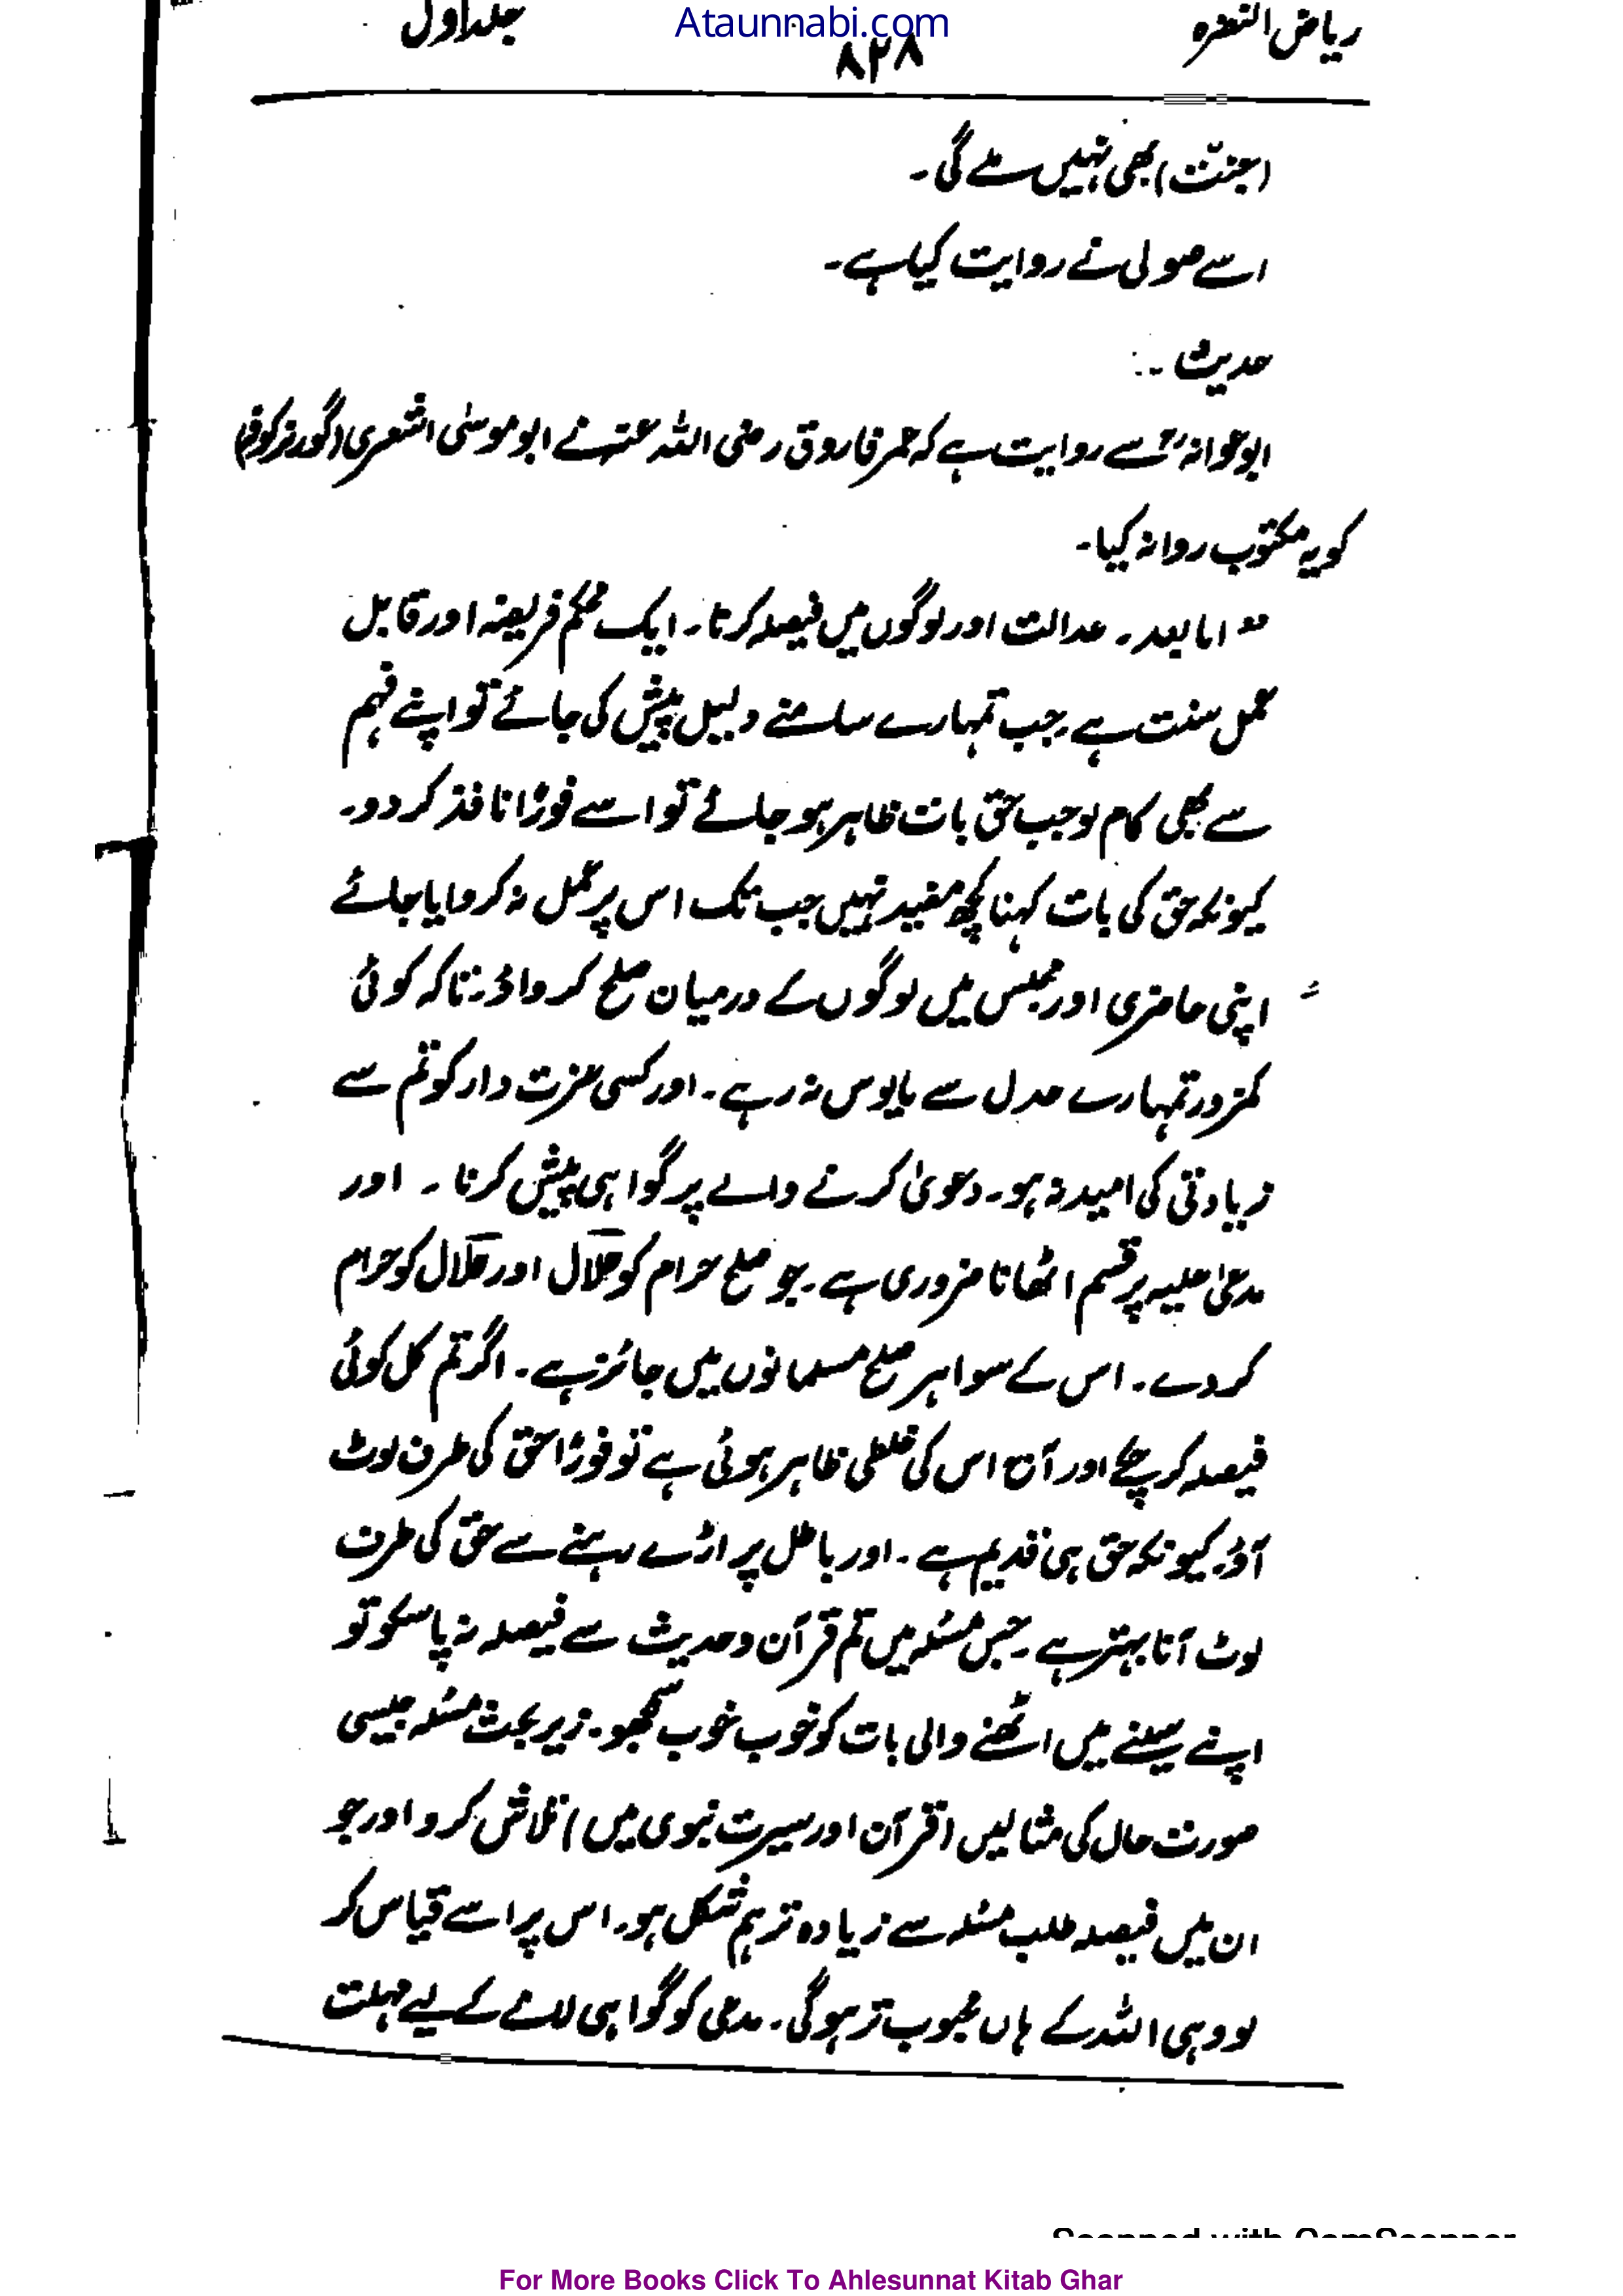 ریاض النضرہ
Ataunnabi.com
جلد اول
۸۲۸
(جنت) بھی نہیں ملے گی۔
اسے صولی نے روایت کیا ہے۔
حدیث ۔:
ابوعوانہؒ سے روایت ہے کہ عمر فاروق رضی اللہ عنہ نے ابوموسیٰ اشعری (گورنر کوفہ)
کو یہ مکتوب روانہ کیا۔
”اما بعد۔ عدالت اور لوگوں میں فیصلہ کرنا۔ ایک محکم فریضہ اور قابل
عمل سنت ہے۔ جب تمہارے سامنے دلیل پیش کی جائے تو اپنے فہم
سے بھی کام لو جب حق بات ظاہر ہو جائے تو اسے فورًا نافذ کر دو۔
کیونکہ حق کی بات کہنا کچھ مفید نہیں جب تک اس پر عمل نہ کروایا جائے
اپنی حاضری اور مجلس میں لوگوں کے درمیان صلح کرواؤ۔ تاکہ کوئی
کمزور تمہارے عدل سے مایوس نہ رہے۔ اور کسی عزت دار کو تم سے
زیادتی کی امید نہ ہو۔ دعویٰ کرنے والے پر گواہی پیش کرنا۔ اور
مدعیٰ علیہ پر قسم اٹھانا ضروری ہے۔ جو صلح حرام کو حلال اور حلال کو حرام
کر دے۔ اس کے سوا ہر صلح مسلمانوں میں جائز ہے۔ اگر تم کل کوئی
فیصلہ کر چکے اور آج اس کی غلطی ظاہر ہوئی ہے تو فورًا حق کی طرف لوٹ
آؤ۔ کیونکہ حق ہی قدیم ہے۔ اور باطل پر اڑے رہنے سے حق کی طرف
لوٹ آنا بہتر ہے۔ جس مسئلہ میں تم قرآن و حدیث سے فیصلہ نہ پا سکو تو
اپنے سینے میں اٹھنے والی بات کو خوب خوب سمجھو۔ زیر بحث مسئلہ جیسی
صورت حال کی مثالیں (قرآن اور سیرت نبوی میں) تلاش کرو اور جو
ان میں فیصلہ طلب مسئلہ سے زیادہ تر ہم شکل ہو۔ اس پر اسے قیاس کر
لو وہی اللہ کے ہاں محبوب تر ہو گی۔ مدعی کو گواہی لانے کے لیے مہلت
Scanned with CamScanner
For More Books Click To Ahlesunnat Kitab Ghar